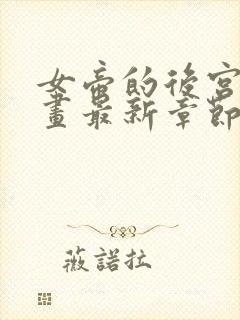 女帝的後宮
畫最新章節
薇諾拉